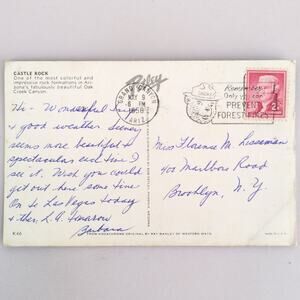 CASTLE ROCK
One of the most colorful and
impressive rock formations in Ari-
zona's fabulously beautiful Oak
Creek Canyon.
Hi - Wonderful trip
& good weather. Scenery
seems more beautiful &
spectacular each time I
see it. Wish you could
get out here some time
On to Las Vegas today
& then L.A. tomorrow
Barbara
K46
FROM KODACHROME ORIGINAL BY RAY MANLEY OF WESTERN WAYS
GRAND CANYON
MAY 9
6 PM
1958
ARIZ.
SMOKEY
Remember
Only you can
PREVENT
FOREST FIRES
2¢
Miss Florence M.
405 Marlboro Road
Brooklyn, N.Y.